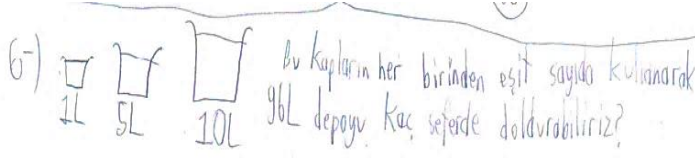 6-)
1L 5L 10L
Bu kapların her birinden eşit sayıda kullanarak
96L depoyu kaç seferde doldurabiliriz?